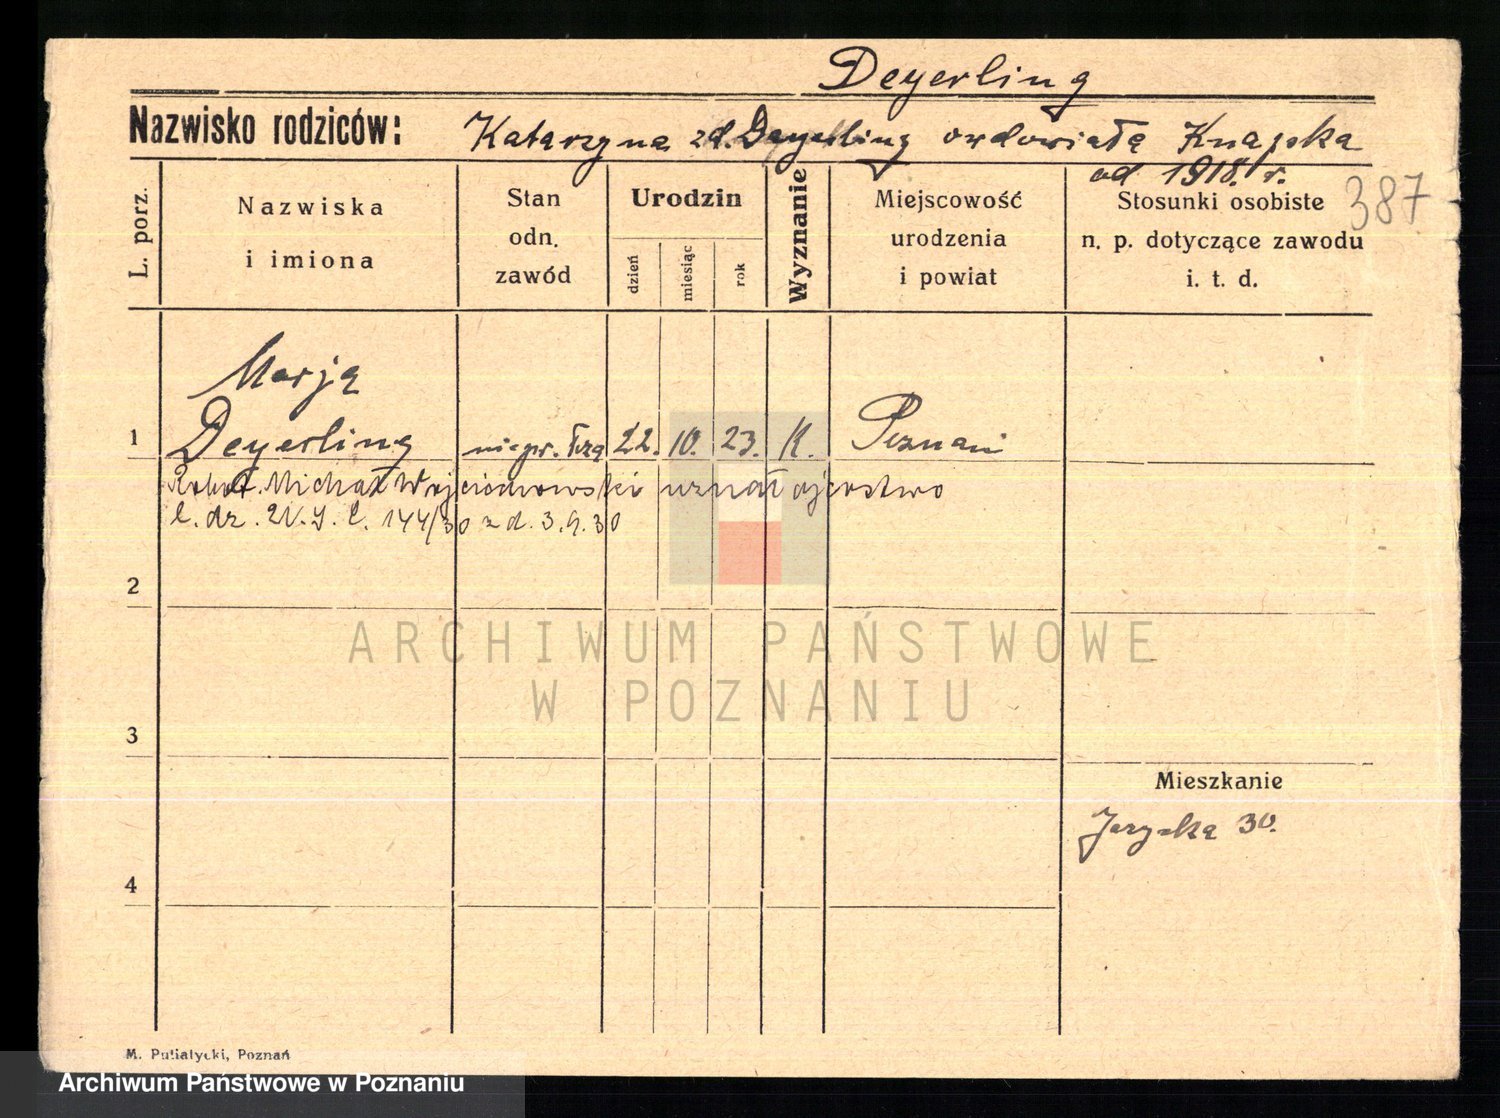 Deyerling
Nazwisko rodziców: Katarzyna zd. Deyerling owdowiała Knapska
od 1918. r.
387
L. porz.
Nazwiska
i imiona
Stan
odn.
zawód
Urodzin
dzień
miesiąc
rok
Wyznanie
Miejscowość
urodzenia
i powiat
Stosunki osobiste
n. p. dotyczące zawodu
i. t. d.
Marja
1 Deyerling niepr. 22. 10. 23. K. Poznań
Robert. Michał Wojciechowski uznał ojcostwo
l. dz. 144/30 z d. 3.9.30
2
3
4
Mieszkanie
30.
ARCHIWUM PAŃSTWOWE
W POZNANIU
M. Putiatycki, Poznań
Archiwum Państwowe w Poznaniu